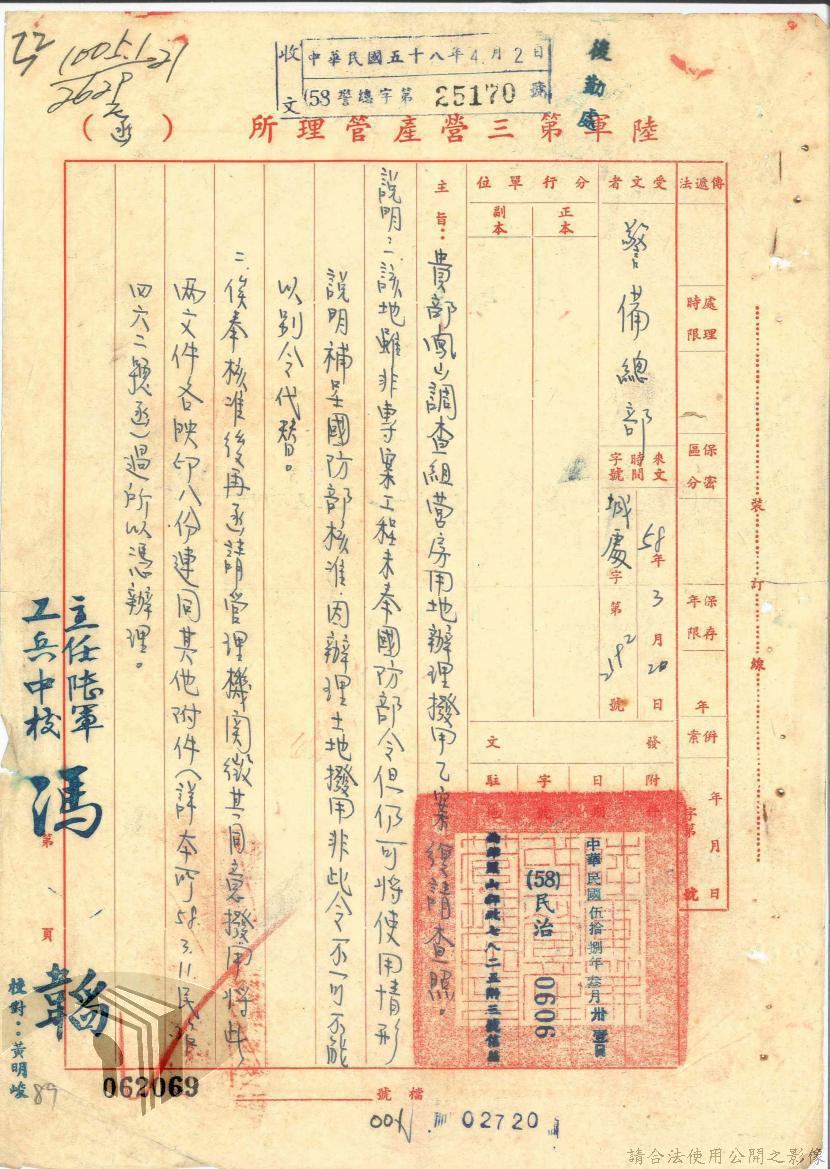 收文
中華民國五十八年4月2日
(58)警總字第25170號
後勤處
陸軍第三營產管理所（函）
傳遞法
處理時限
保密區分
保存年限
年
併案
年月日
字第號
裝訂線
受文者
警備總部
來文時間字號
58年3月20日
城慶字第 號
分行單位
正本
副本
發文
附件
日期
中華民國伍拾捌年叁月卅壹日
字號
(58)民治
9060
駐地
主旨：貴部鳳山調查組營房用地辦理撥用乙案復請查照。
說明：一、該地雖非專案工程未奉國防部令但仍可將使用情形
說明補呈國防部核准因辦理土地撥用非此令不可不能
以別令代替。
二、俟奉核准後再函請管理機關徵其同意撥用將此
兩文件各映印八份連同其他附件（詳本所58.3.11.民治
四六二號函）過所以憑辦理。
主任陸軍工兵中校馮
第 頁
校對：黃明峻
89
062069
檔號
02720
請合法使用公開之影像